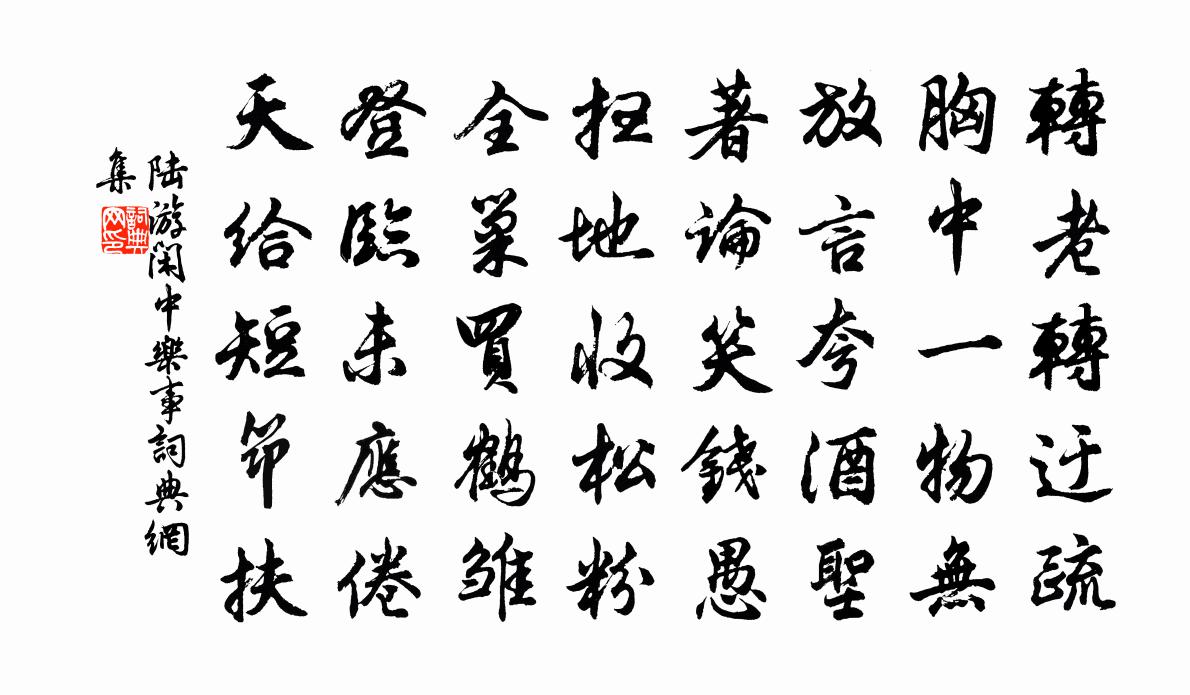 轉老轉迂疏
胸中一物無
放言夸酒聖
著論笑錢愚
扫地收松粉
全巢買鶴雏
登臨未應倦
天给短筇扶
陆游闲中樂事詞典網
集
詞典
网印